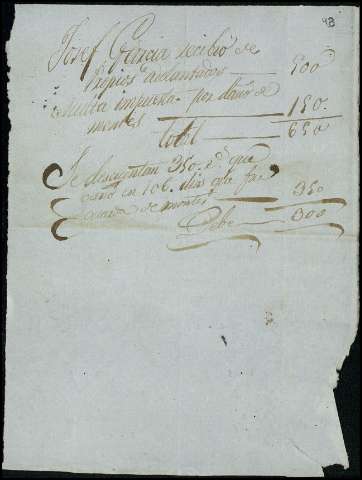 43
Josef Garcia recibió de
Propios adelantados 500
Multa impuesta por daño de
montes 150
total 650
Se descuentan 350 r.s que
ganó en 106 dias qe fue
guarda de montes 350
Debe 300